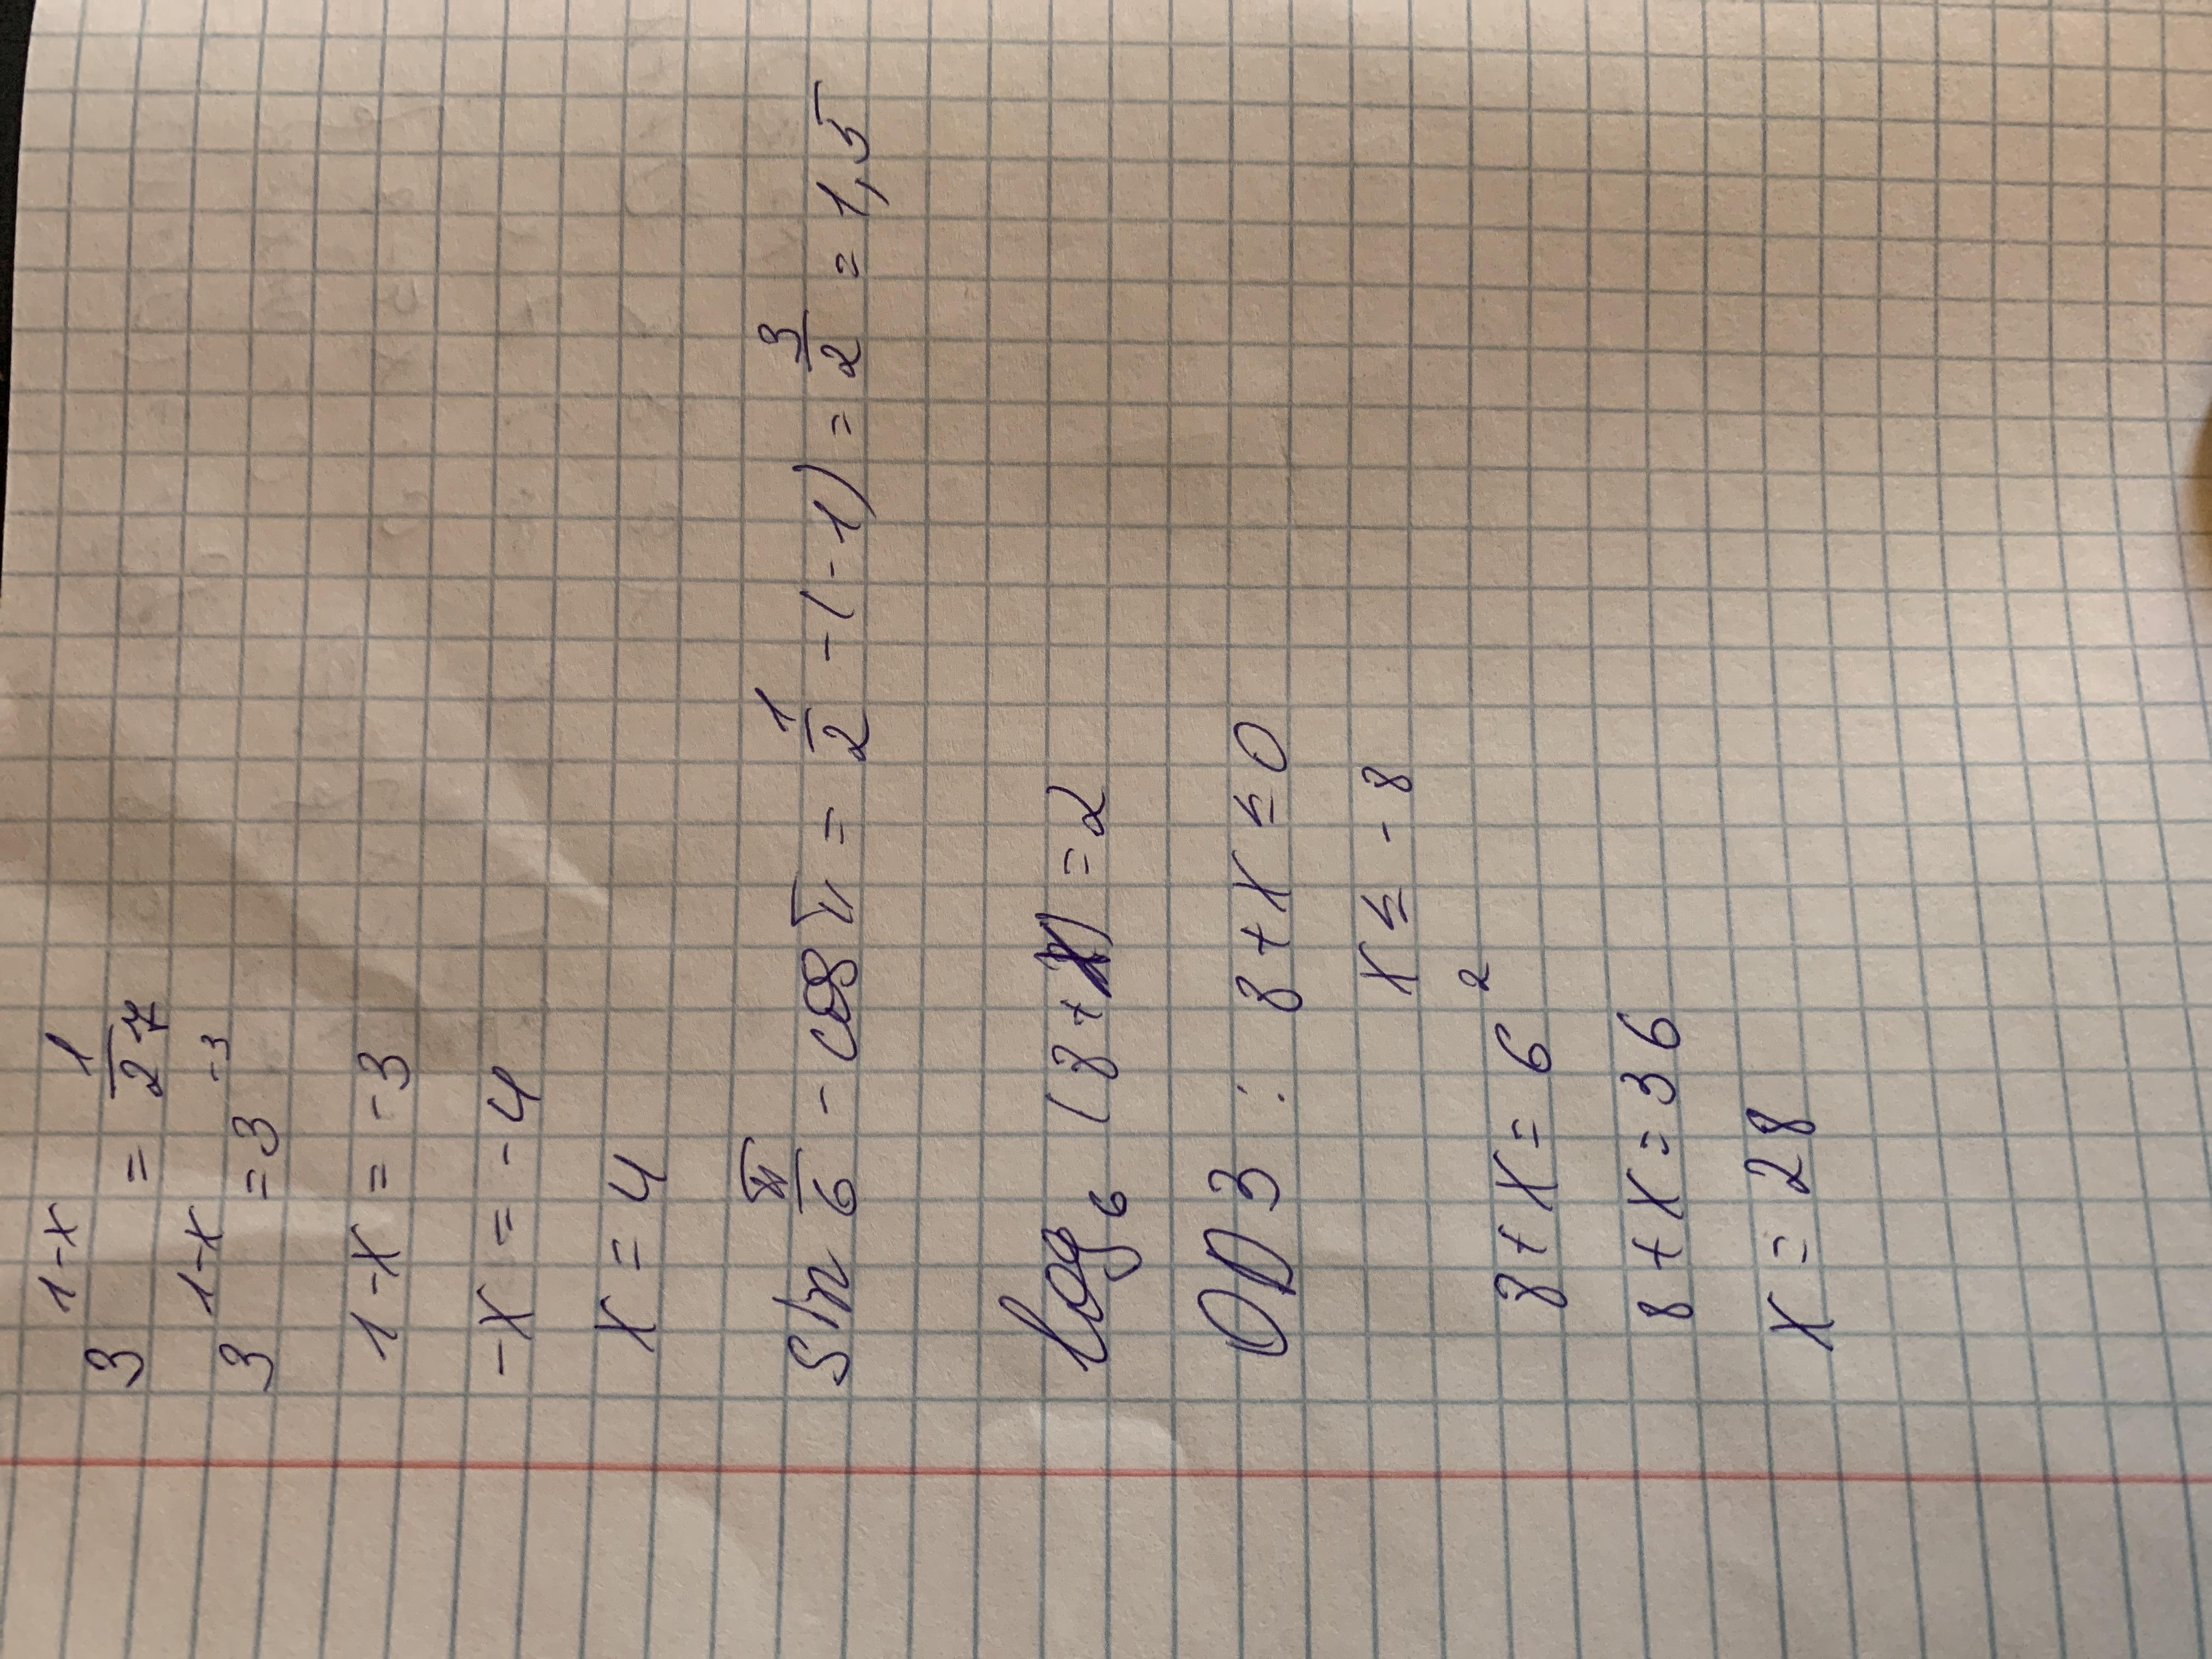 3^(1-x) = 1/27
3^(1-x) = 3^(-3)
1-x = -3
-x = -4
x = 4
sin π/6 - cos π = 1/2 - (-1) = 3/2 = 1,5
log₆ (8+x) = 2
ОДЗ: 8+x ≤ 0
x ≤ -8
8+x = 6²
8+x = 36
x = 28